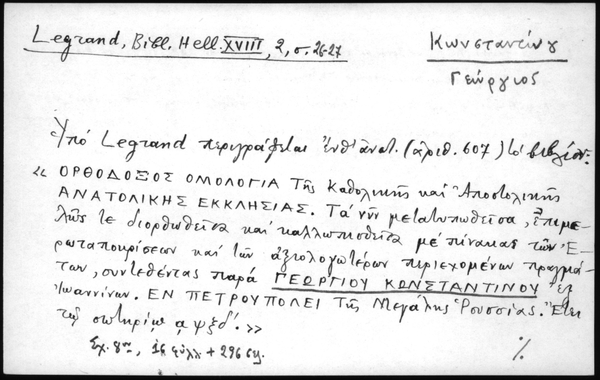 Legrand, Bibl. Hell. XVIII, 2, σ. 26-27
Κωνσταντίνου
Γεώργιος
Ὑπό Legrand περιγράφεται ἐνθ' ἀνωτ. (ἀριθ. 607) τό βιβλίον:
«ΟΡΘΟΔΟΞΟΣ ΟΜΟΛΟΓΙΑ τῆς Καθολικῆς καί Ἀποστολικῆς
ΑΝΑΤΟΛΙΚΗΣ ΕΚΚΛΗΣΙΑΣ. Τά νῦν μετατυπωθεῖσα, ἐπιμε-
λῶς τε διορθωθεῖσα καί καλλωπισθεῖσα μέ πίνακας τῶν Ἐ-
ρωταποκρίσεων καί τῶν ἀξιολογωτέρων περιεχομένων πραγμά-
των, συντεθέντας παρά ΓΕΩΡΓΙΟΥ ΚΩΝΣΤΑΝΤΙΝΟΥ ἐξ
Ἰωαννίνων. ΕΝ ΠΕΤΡΟΥΠΟΛΕΙ τῆς Μεγάλης Ῥουσσίας. Ἔτει
τῷ σωτηρίῳ αψξδ'.»
Σχ. 8ον, 16 φύλλ. + 296 σελ.
%